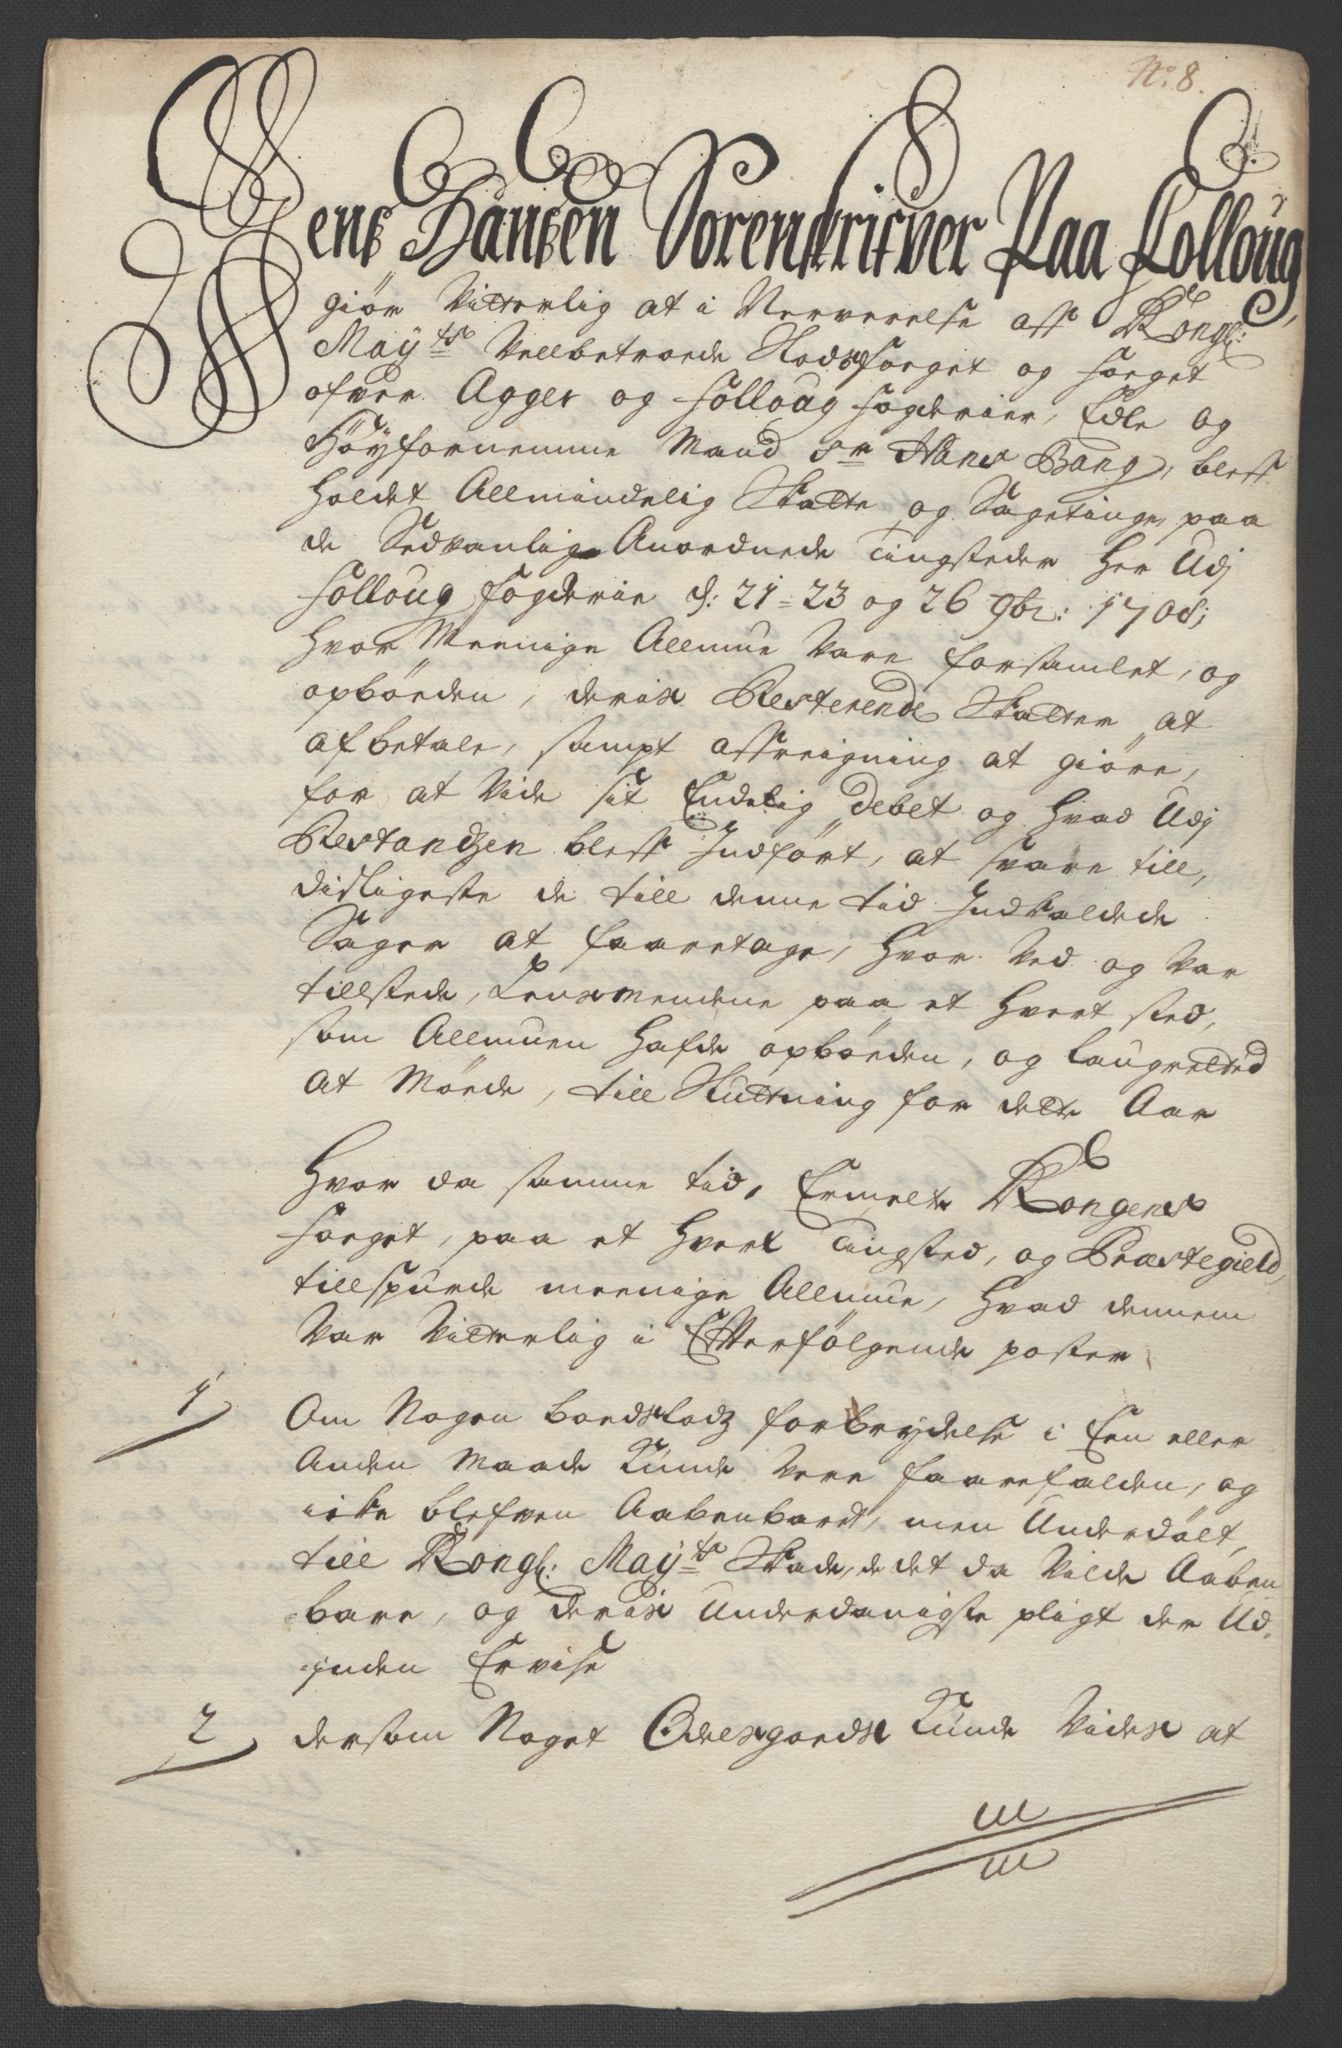 No: 8.
Jens Hansen Sorenskrifver Paa Folloug,
giör Vitterlig at i Nerverelse aff Kongl:
Mayts Vellbetroede Stadsfoeget og foeget
ofver Agger og Folloug fogderier, Edle og
Höyfornemme Mand Sr Hans Bang, bleff
holdet Allmindelig Skatte og Sageting, paa
de Sedvanlig Anordnede Tingsteder her Udj
Folloug fogderie d: 21 = 23 og 26 9br: 1708;
hvor Meenige Allmue Vare forsamlet, og
opböeden, deris Resterende Skatter at
afbetale, sampt affreigning at giöre,
for at Vide sit Endelig debet og hvad Udj
Restandzen bleff Indfört, at svare till,
disligeste de till denne tid Indkaldede
Sager at faaretage, hvor Ved og Var
tillstede, Lensmendene paa et hvert sted,
som Allmuen hafde opböeden, og laugretted
at Möede, till Slutning for dette Aar
Hvor da samme tid, Ermelte Kongens
foeget, paa et hvert Tingsted, og Præstegield,
tillspurde meenige Allmue, hvad dennem
Var Vitterlig i Efterfölgende poster
1 Om Nogen boedslodz forbrydelse i Een eller
Anden Maade Kunde Vere faarefalden, og
icke blefven Aabenbaret, men Underdölt,
till Kongl: Mayts Skade, de det da Vilde Aaben
bare, og deris Underdanigste pligt der Ud-
jnden Ervise
2 dersom Noget Odelsgoeds Kunde Vides at